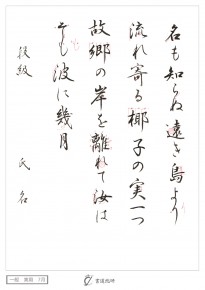 名も知らぬ遠き島より
流れ寄る椰子の実一つ
故郷の岸を離れて汝は
そも波に幾月
段級 氏名
一般 7月
書道